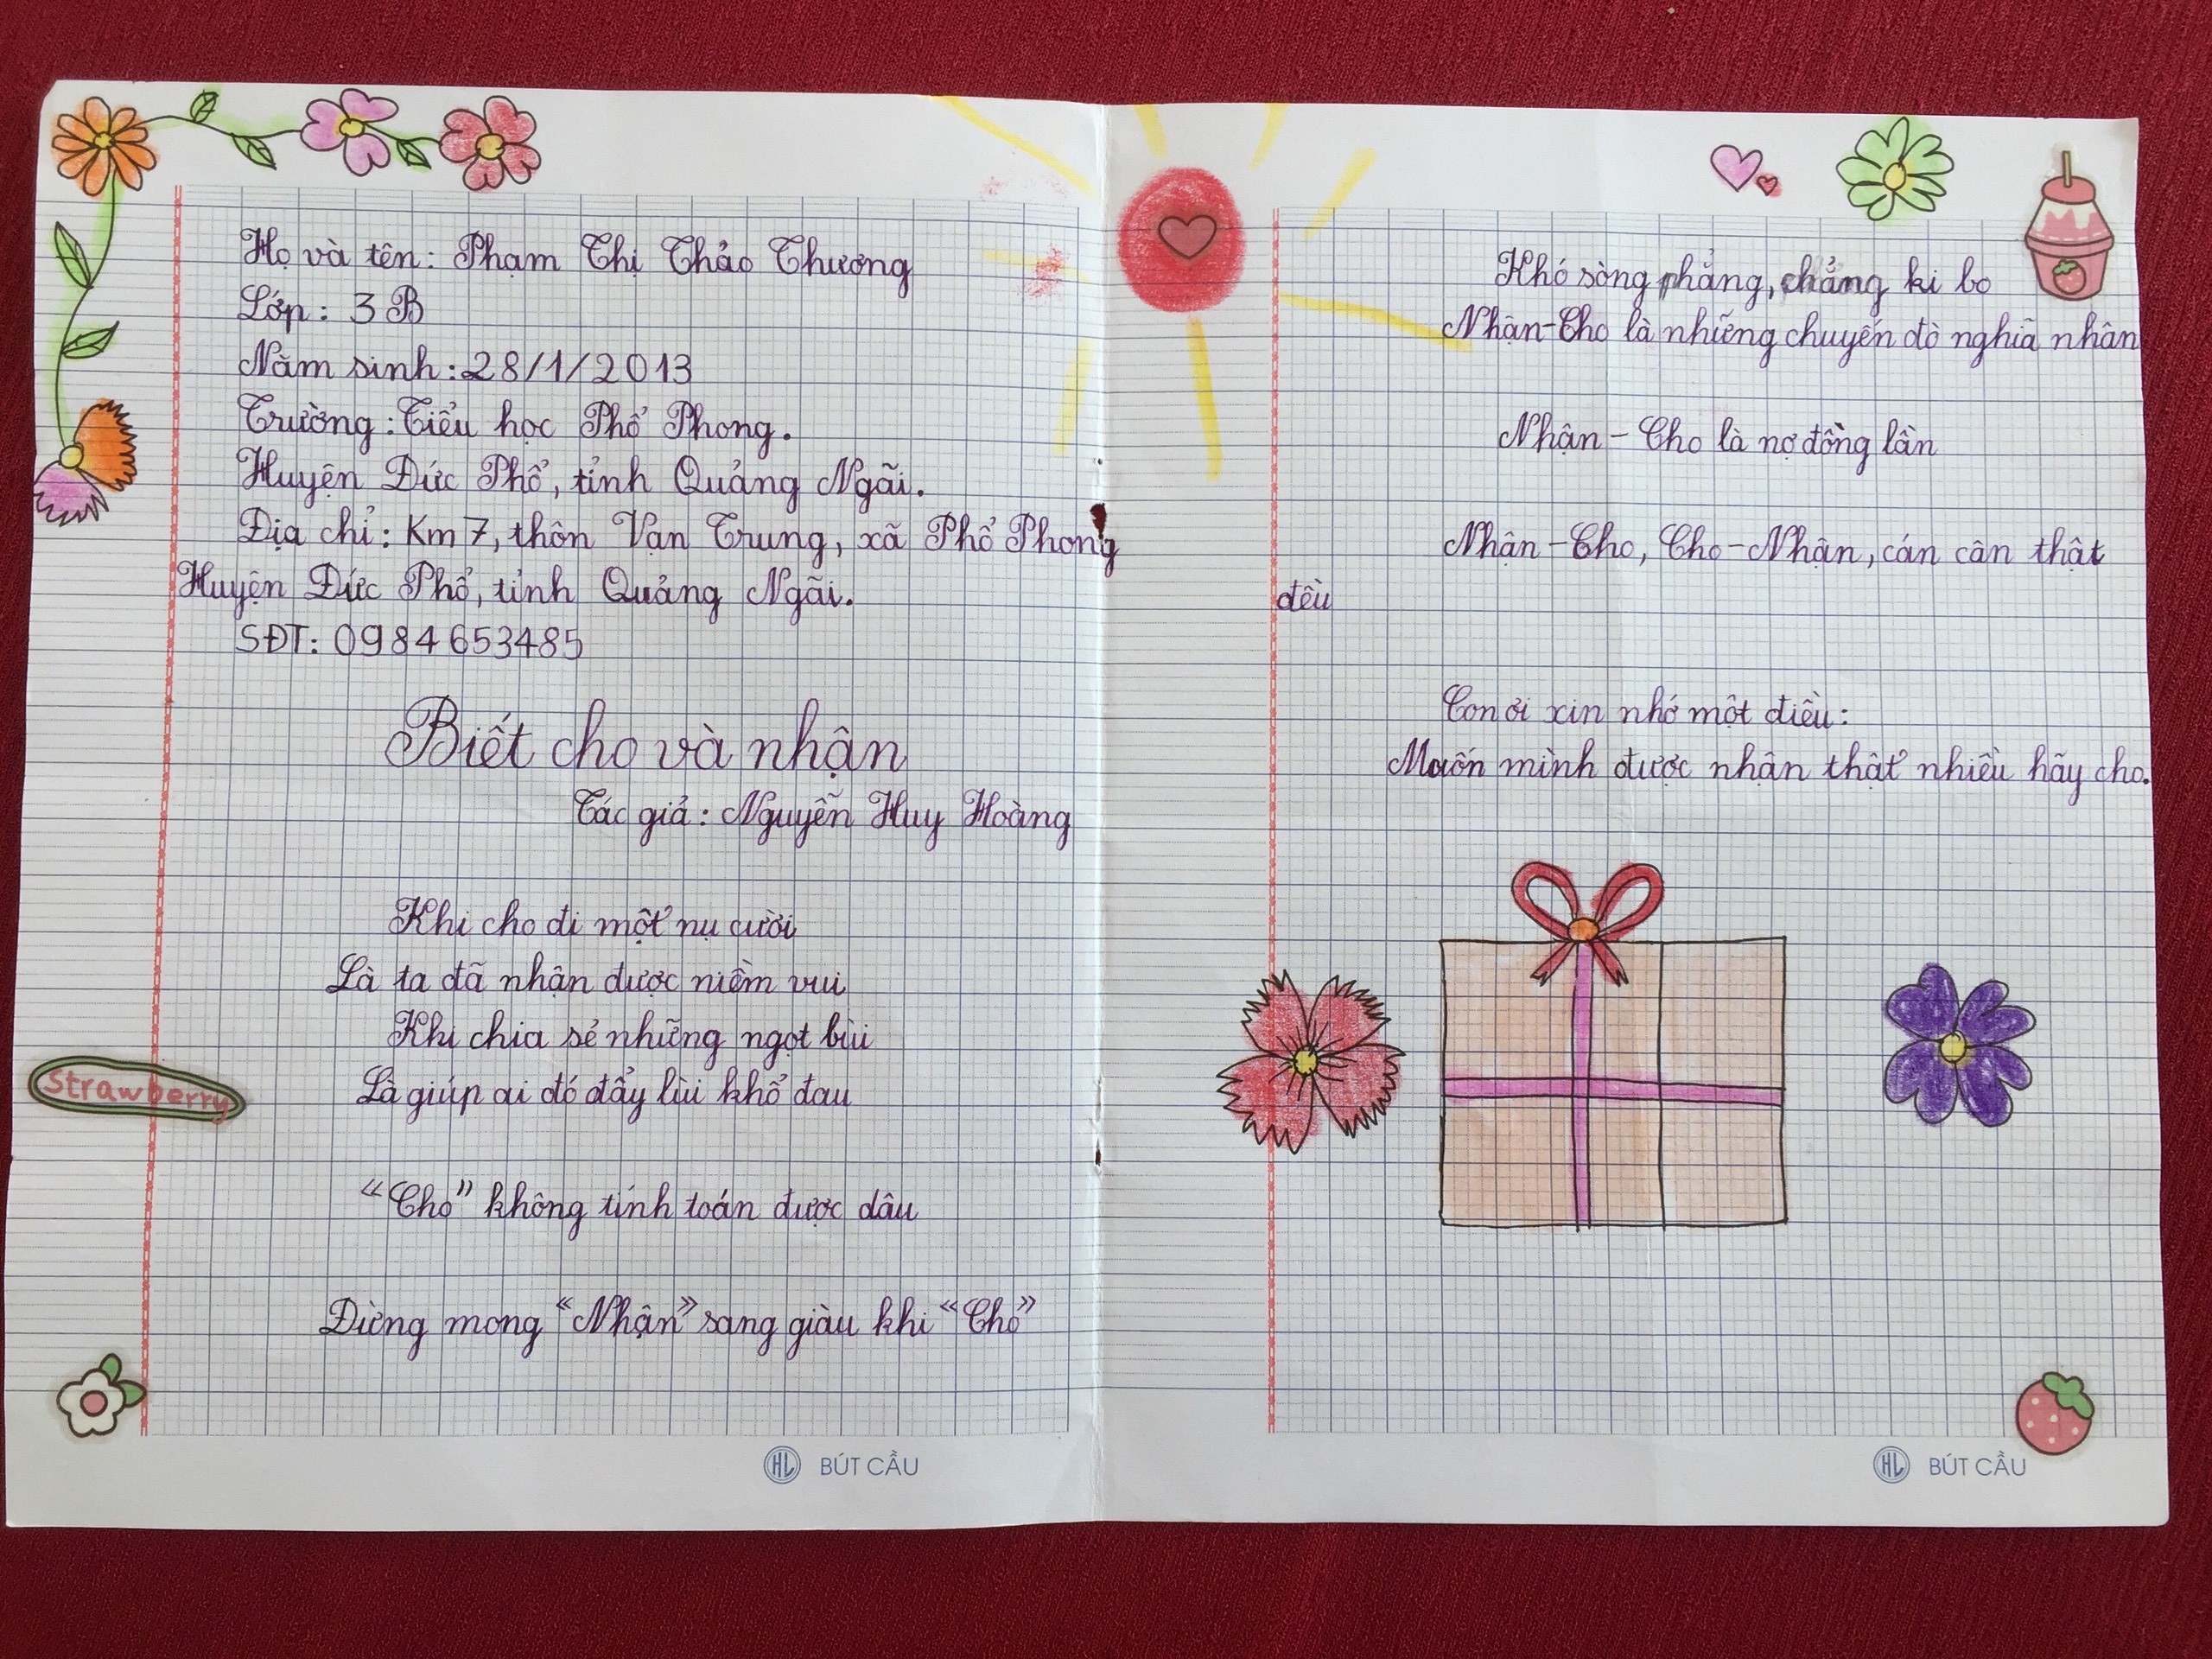 Họ và tên: Phạm Thị Thảo Thương
Lớp: 3B
Năm sinh: 28/1/2013
Trường: Tiểu học Phổ Phong.
Huyện Đức Phổ, tỉnh Quảng Ngãi.
Địa chỉ: Km 7, thôn Vạn Trung, xã Phổ Phong
Huyện Đức Phổ, tỉnh Quảng Ngãi.
SĐT: 0984653485
Biết cho và nhận
Tác giả: Nguyễn Huy Hoàng
Khi cho đi một nụ cười
Là ta đã nhận được niềm vui
Khi chia sẻ những ngọt bùi
Là giúp ai đó đẩy lùi khổ đau
"Cho" không tính toán được dâu
Đừng mong "Nhận" sang giàu khi "Cho"
Strawberry
HL BÚT CẦU
Khó sòng phẳng, chẳng ki bo
Nhận-Cho là những chuyến đò nghĩa nhân
Nhận - Cho là nợ đồng lần
Nhận - Cho, Cho-Nhận, cán cân thật
đều
Con ơi xin nhớ một điều:
Muốn mình được nhận thật nhiều hãy cho.
HL BÚT CẦU